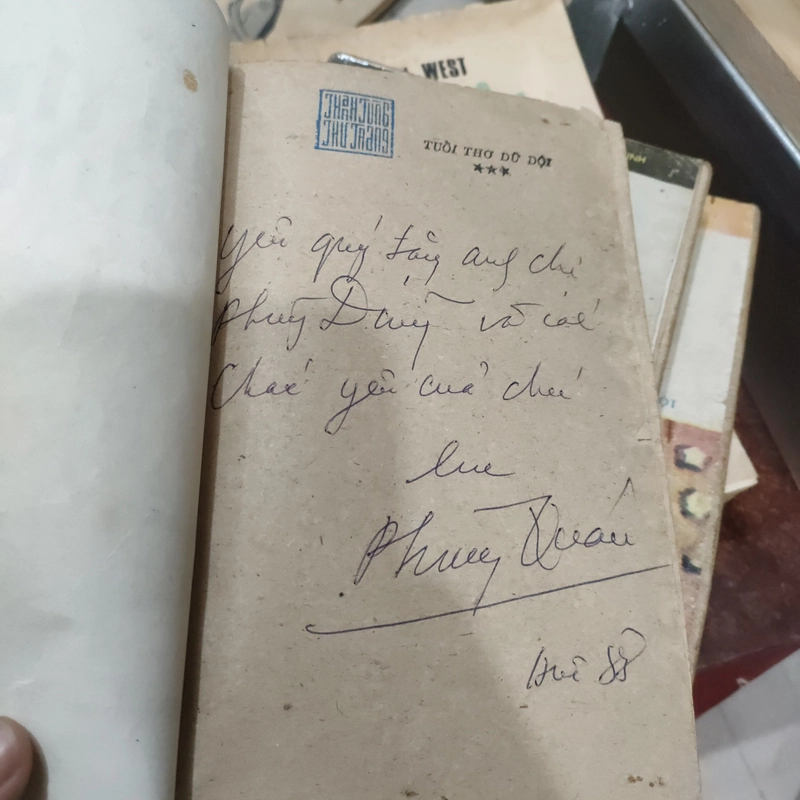 WEST
THANH TÙNG
THƯ TRANG
TUỔI THƠ DỮ DỘI
★★★
Yêu quý tặng anh chị
Phùng và các
cháu yêu của chú
Phùng Quán
Huế 88